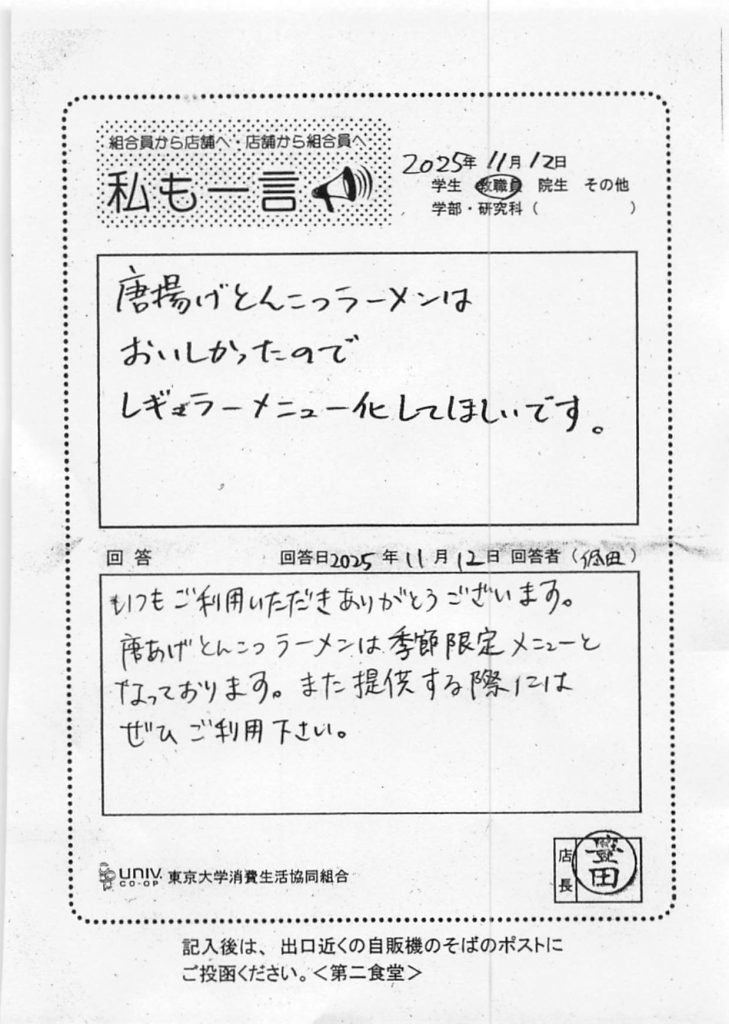 組合員から店舗へ・店舗から組合員へ
私も一言
2025年 11月 12日
学生 教職員 院生 その他
学部・研究科( )
唐揚げとんこつラーメンは
おいしかったので
レギュラーメニュー化してほしいです。
回答 回答日2025年11月12日 回答者( 田)
いつもご利用いただきありがとうございます。
唐あげとんこつラーメンは季節限定メニューと
なっております。また提供する際には
ぜひご利用下さい。
UNIV. CO-OP 東京大学消費生活協同組合
店長 田
記入後は、出口近くの自販機のそばのポストに
ご投函ください。<第二食堂>